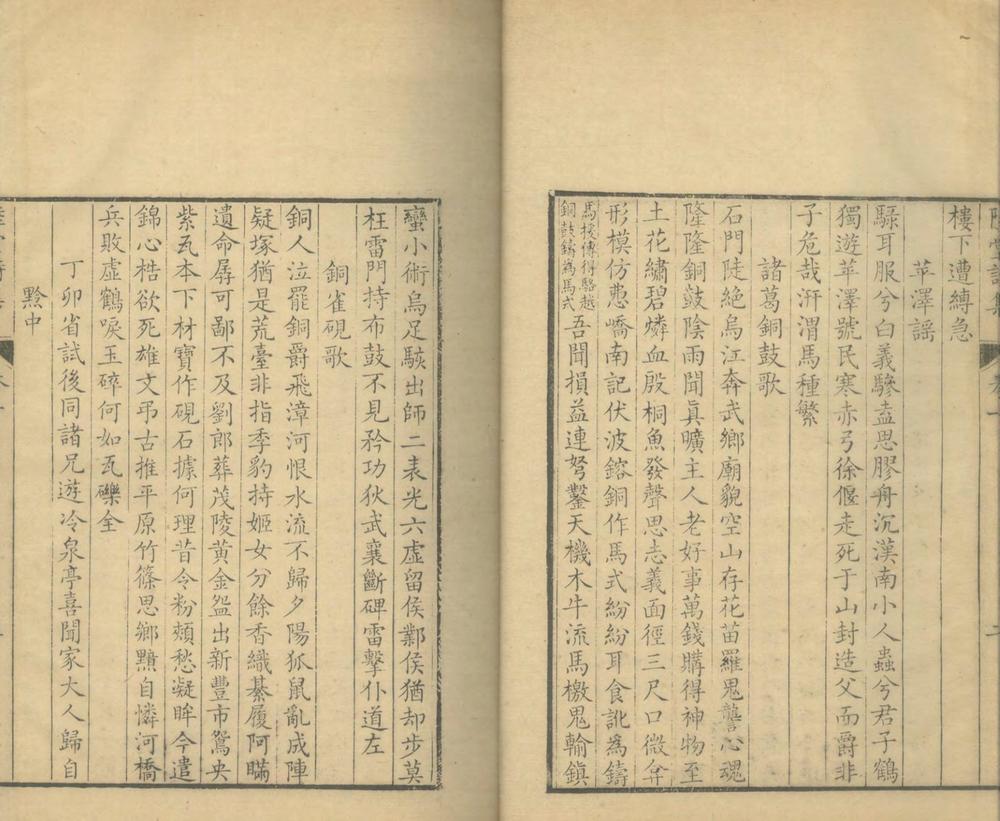 樓下遭縛急
苹澤謡
騄耳服兮白義驂盍思膠舟沉漢南小人蟲兮君子鶴
獨遊苹澤號民寒赤弓徐偃走死于山封造父而爵非
子危哉汧渭馬種繁
諸葛銅鼓歌
石門陡絶烏江奔武鄉廟貌空山存花苗羅鬼讋心魂
隆隆銅鼓陰雨聞眞曠主人老好事萬錢購得神物至
土花繡碧燐血殷桐魚發聲思志義面徑三尺口微弇
形模仿悳嶠南記伏波鎔銅作馬式紛紛耳食訛為鑄
馬援傳得駱越
銅鼓鑄為馬式
吾聞損益連弩鑿天機木牛流馬檄鬼輸鎭
蠻小術烏足駭出師二表光六虛留侯酇侯猶却步莫
枉雷門持布鼓不見矜功狄武襄斷碑雷擊仆道左
銅雀硯歌
銅人泣罷銅爵飛漳河恨水流不歸夕陽狐鼠亂成陣
疑塚猶是荒臺非指季豹持姬女分餘香織綦履阿瞞
遺命孱可鄙不及劉郎葬茂陵黄金盌出新豐市鴛央
紫瓦本下材寶作硯石據何理昔令粉頰愁凝眸今遣
錦心梏欲死雄文弔古推平原竹篠思鄉黯自憐河橋
兵敗虛鶴唳玉碎何如瓦礫全
丁卯省試後同諸兄遊冷泉亭喜聞家大人歸自
黔中